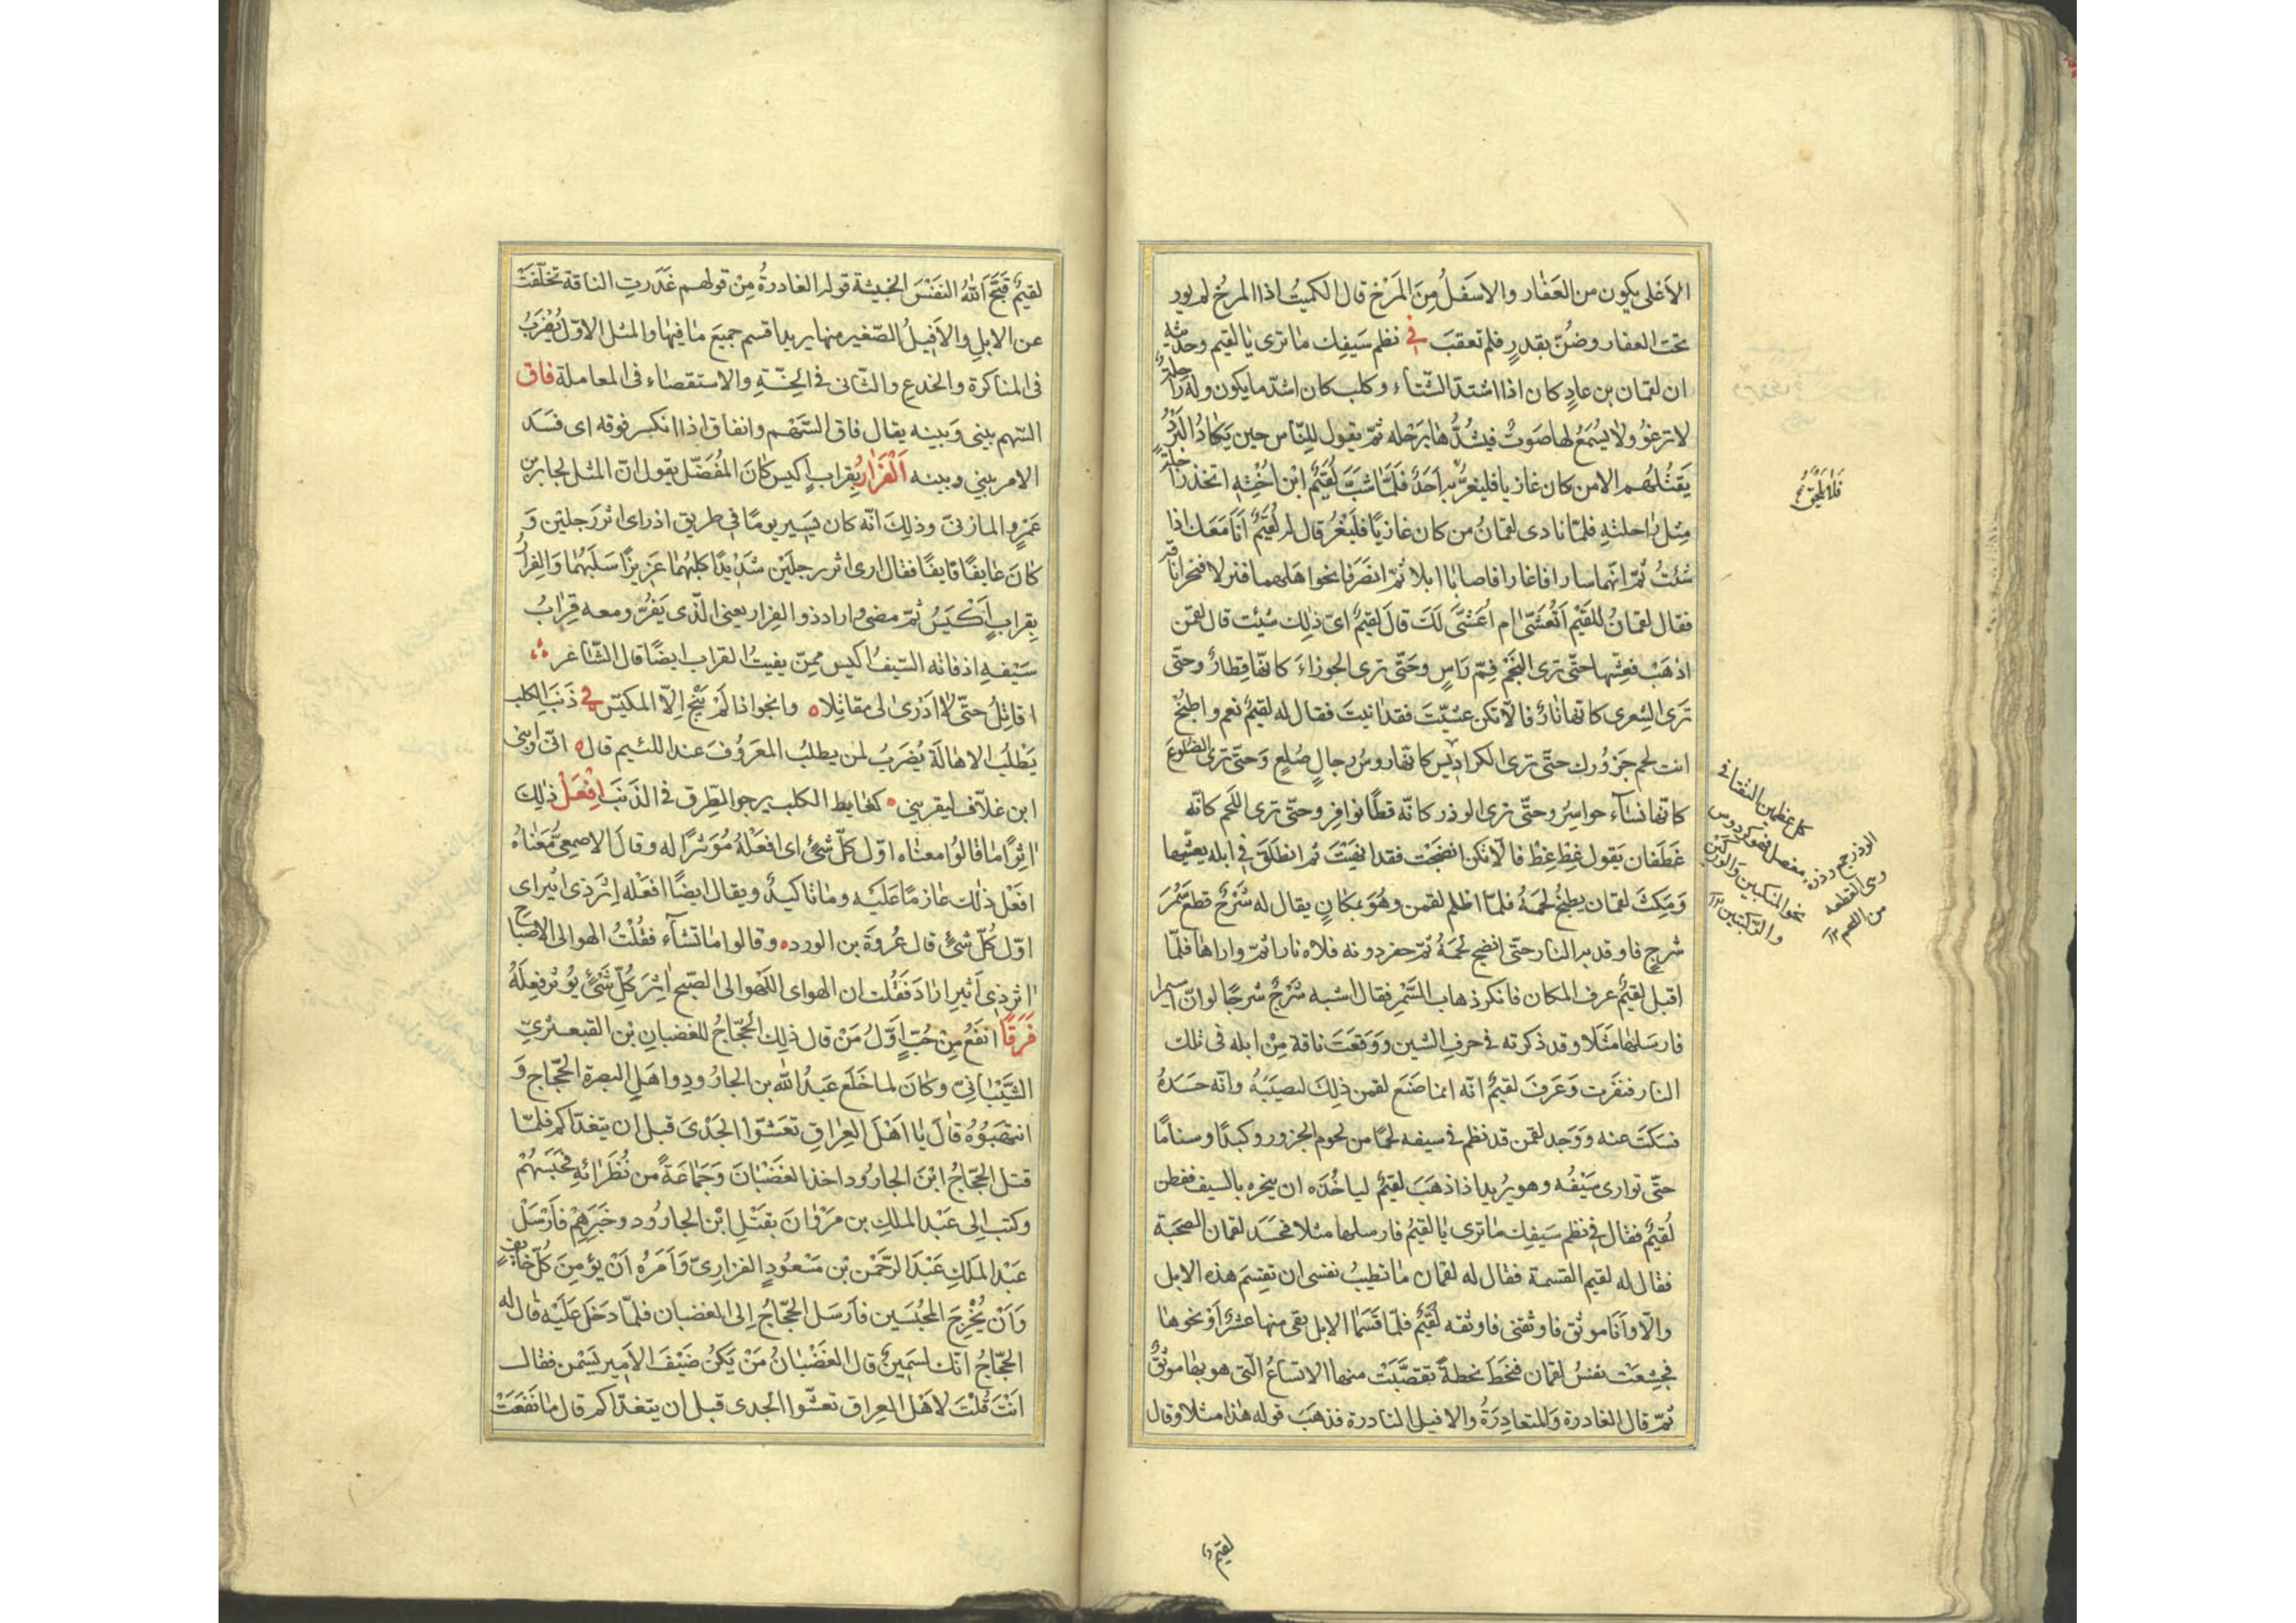 الأعلى يكون من العَفار والاسفلُ مِنَ المَرْخ قال الكميتُ اذا المرخ لم يور
تحت العفار وضُنّ بقدرٍ فلم تعقبَ في نظم سَيفك ما ترى يا لقيم وحديثه
ان لقمان بن عادٍ كان اذا اشتدّ الشّتاء وكلب كان اشدّ ما يكون وله راحلة
لا ترغو ولا يُسمَعُ لها صَوتٌ فيشُدُّها برَحْله ثمّ يقول للنّاس حين يَكادُ البَرْدُ
يَقتُلُهم الا من كان غازيا فليغزُ فلَمّا شبَّ لُقَيمُ ابْن اُخْتِهِ اتخذ راحلةً
مِثل راحلتِهِ فلمّا نادى لقمانُ من كان غازيًا فليَغزُ قال له لُقَيمٌ اَنا مَعَك اذا
شئتُ ثمّ انّهما سارا فاغارا فاصابا ابلا ثمّ انصَرَفا نحو اهلهما فنزلا فنحرا ناقة
فقال لقمانُ للقَيْم اَتُعَشّى ام اُعَشّى لَكَ قالَ لقيمٌ ايّ ذٰلك شئت قال لقمٰن
اذهَبْ فعشّها حتّى ترى النجَمْ قِمّ رَاسٍ وحَتّى ترى الجوزاءَ كانّها قِطارٌ وحتّى
تَرى الشِعرى كانها نارٌ فالّا تكن عشيّتَ فقد انيتَ فقال له لقيمٌ نعم واطبُخْ
انت لحم جَزُورك حتّى ترى الكراديسَ كانّها رؤسُ رجالٍ صُلعٍ وَحتّى ترى الضلوعَ
كانّها نسآء حواسِرُ وحتّى ترى الوذر كانّه قطًا نوافِر وحتّى ترى اللّحم كانّه
غَطَفان يَقول غِطْ غِطْ فالّا تكن انضجت فقد انيَتَ ثم انطلَقَ في ابله يعشّيها
وَمَكثَ لقمان يطبُخُ لحمَهُ فلمّا اظلم لقمٰن وهُوَ بمكانٍ يقال له شَرْجٌ قطع سَمُرَ
شرج فاوقد به النار حتّى انضج لحمَهُ ثمّ حفر دونه فملاه نارا ثمّ واراها فلمّا
اقبل لقيمٌ عرف المكان فانكر ذهاب السَّمُر فقال اشبه شَرْجٌ شرجًا لو انّ اسيمرا
فارسَلها مَثلا وقد ذكرته في حرف الشين ووَقعَت ناقة مِنْ ابله فى تلك
النار فنفَرت وَعَرفَ لقيمٌ انّه انما صَنَع لقمٰن ذلِكَ ليصيبَهُ وانّه حسَدهُ
فسَكتَ عنه ووَجد لقمٰن قد نظم في سيفه لحمًا من لحوم الجزور وكبدًا وسنامًا
حتّى توارى سَيْفُه وهو يُريد اذا ذهَبَ لقيمٌ لياخُذَه ان ينحره بالسيف ففطن
لُقيمٌ فقال في نظم سَيفِك ما ترى يا لقيمُ فارسلها مثلا فحَسَد لقمان الصحبَة
فقال له لقيم القسمة فقال له لقمان ما تطيبُ نفسى ان تقسِمَ هذه الابل
والّا واَنَا موثق فاوثقنى فاوثقه لُقَيمٌ فلمّا قسَمَا الابل بقى منها عشرٌ اَوْ نحوها
فجشِعَت نفسُ لقمان فنحَطَ نحطةً تقضّبَتْ منها الانساعُ الّتى هو بها موثقٌ
ثمّ قال الغادرة وَالمتغادِرَةُ والافيل النادرة فذهَبَ قوله هٰذا مثلا وقال
فلا يلحق
كل عظمين التقتا فى
مفصل فهو كردوس
نحو المنكبين والوركين
والركبتين ١٢
الوذر جمع وذرة
وهى القطعة
من اللحم ١٢
لقيم
لقيمٌ قَبّحَ اللهُ النفَسَ الخبيثة قوله الغادرةُ مِنْ قولهم غَدَرتِ الناقة تخلّفتْ
عن الابل والاَفيلُ الصّغير منها يريد اقسم جميعَ ما فيها والمثل الاوّل يُضْرَبُ
فى المناكرة والخدع والثّانى في الخِسّةِ والاستقصاء فى المعاملة فاق
السّهم بينى وَبينه يقال فاق السَّهْم وانفاق اذا انكسر فوقه اى فسَد
الامر بيني وبينه اَلْفَرارُ بِقرابٍ اَكيس كانَ المُفضّل يقول انّ المثل لجابر بن
عَمْرٍو المازنىّ وذلِكَ انّه كان يَسير يومًا في طريق اذ راى اثر رَجلين وَ
كانَ عايفًا قايفًا فقال ارى اثر رجلَيْن شَدْيدًا كلبُهُما عَزيزًا سَلَبُهُما وَالفِرارُ
بِقِرابٍ اَكْيَسُ ثمّ مضى اراد ذو الفِرار يعنى الّذى يَفُرُّ ومعه قِرابُ
سَيْفهِ اذ فاته السّيفُ اكيس ممّن يفيتُ القراب ايضًا قال الشّاعر
اقاتِلُ حتّى لا اَرى لى مقاتِلا وانجو اذا لَمْ ينْجُ اِلّا المكيّس في ذَنَبِ الكلب
يَطلُبُ الاهالَة يُضرَبُ لمن يطلبُ المعرُوفَ عند اللئيم قال انّى وابنى
ابن غلّاف ليقرينى كغابط الكلب يرجو الطِرق في الذَنَب اِفْعَلْ ذٰلِك
اٰثِرًا مّا قالوا معناه اوّل كلّ شئٍ اى افعَلْهُ مُؤثرًا له وقالَ الاصمعىُّ مَعْناهُ
افعَل ذلك عازمًا عَلَيه وما تاكيدٌ ويقال ايضًا افعَله اِثرَ ذى اَثير اى
اوّل كُلّ شئٍ قال عُروَة بن الورد وقالوا ما تشآء فقُلْتُ الهو الى الاصباح
اٰثر ذِى اَثير ارادَ فقُلت ان الهو اى اللّهو الى الصبح اٰثرَ كُلّ شَئٍ يؤثر فِعلَهُ
فَرَقًا انفَعُ مِنْ حُبٍّ اَوّلُ مَنْ قال ذلك الحَجّاجُ للغضبانِ بْن القبعثرىّ
الشّيْبانىّ وكانَ لما خلَع عَبدُ الله بن الجارُودِ واهل البصرة الحجّاج وَ
انتهَبُوُهُ قالَ يا اهَلَ العِراق تعَشّوا الجَدْىَ قبل ان يتغدّاكم فلمّا
قتل الحجّاجُ ابْن الجارُود اخذ الغضَبانَ وَجَماعَةً من نُظَرائِهِ فحَبَسَهُمْ
وكتب اِلى عَبْد الملكِ بن مَروْانَ بقتْلِ ابْن الجارُود وخبَرهِمْ فَارْسَل
عَبْد الملكِ عَبْد الرّحْمٰن بْن مَسْعُودٍ الفزارىّ وَاَمَرهُ اَنْ يؤمِنَ كُلّ خايفٍ
وَاَنْ يُخْرجَ المحبُسين فاَرسَل الحجّاجُ اِلى الغضبان فلمّا دَخل عَلَيْه قال له
الحجّاجُ انّك لسَمينٌ قال الغَضْبانُ مَنْ يَكُنْ ضَيْفَ الاَمِير يَسْمن فقال
اَنْتَ قُلْتَ لاهْل العِراق تعشّوا الجدى قبل ان يتغدّاكم قال ما نَفعَتْ